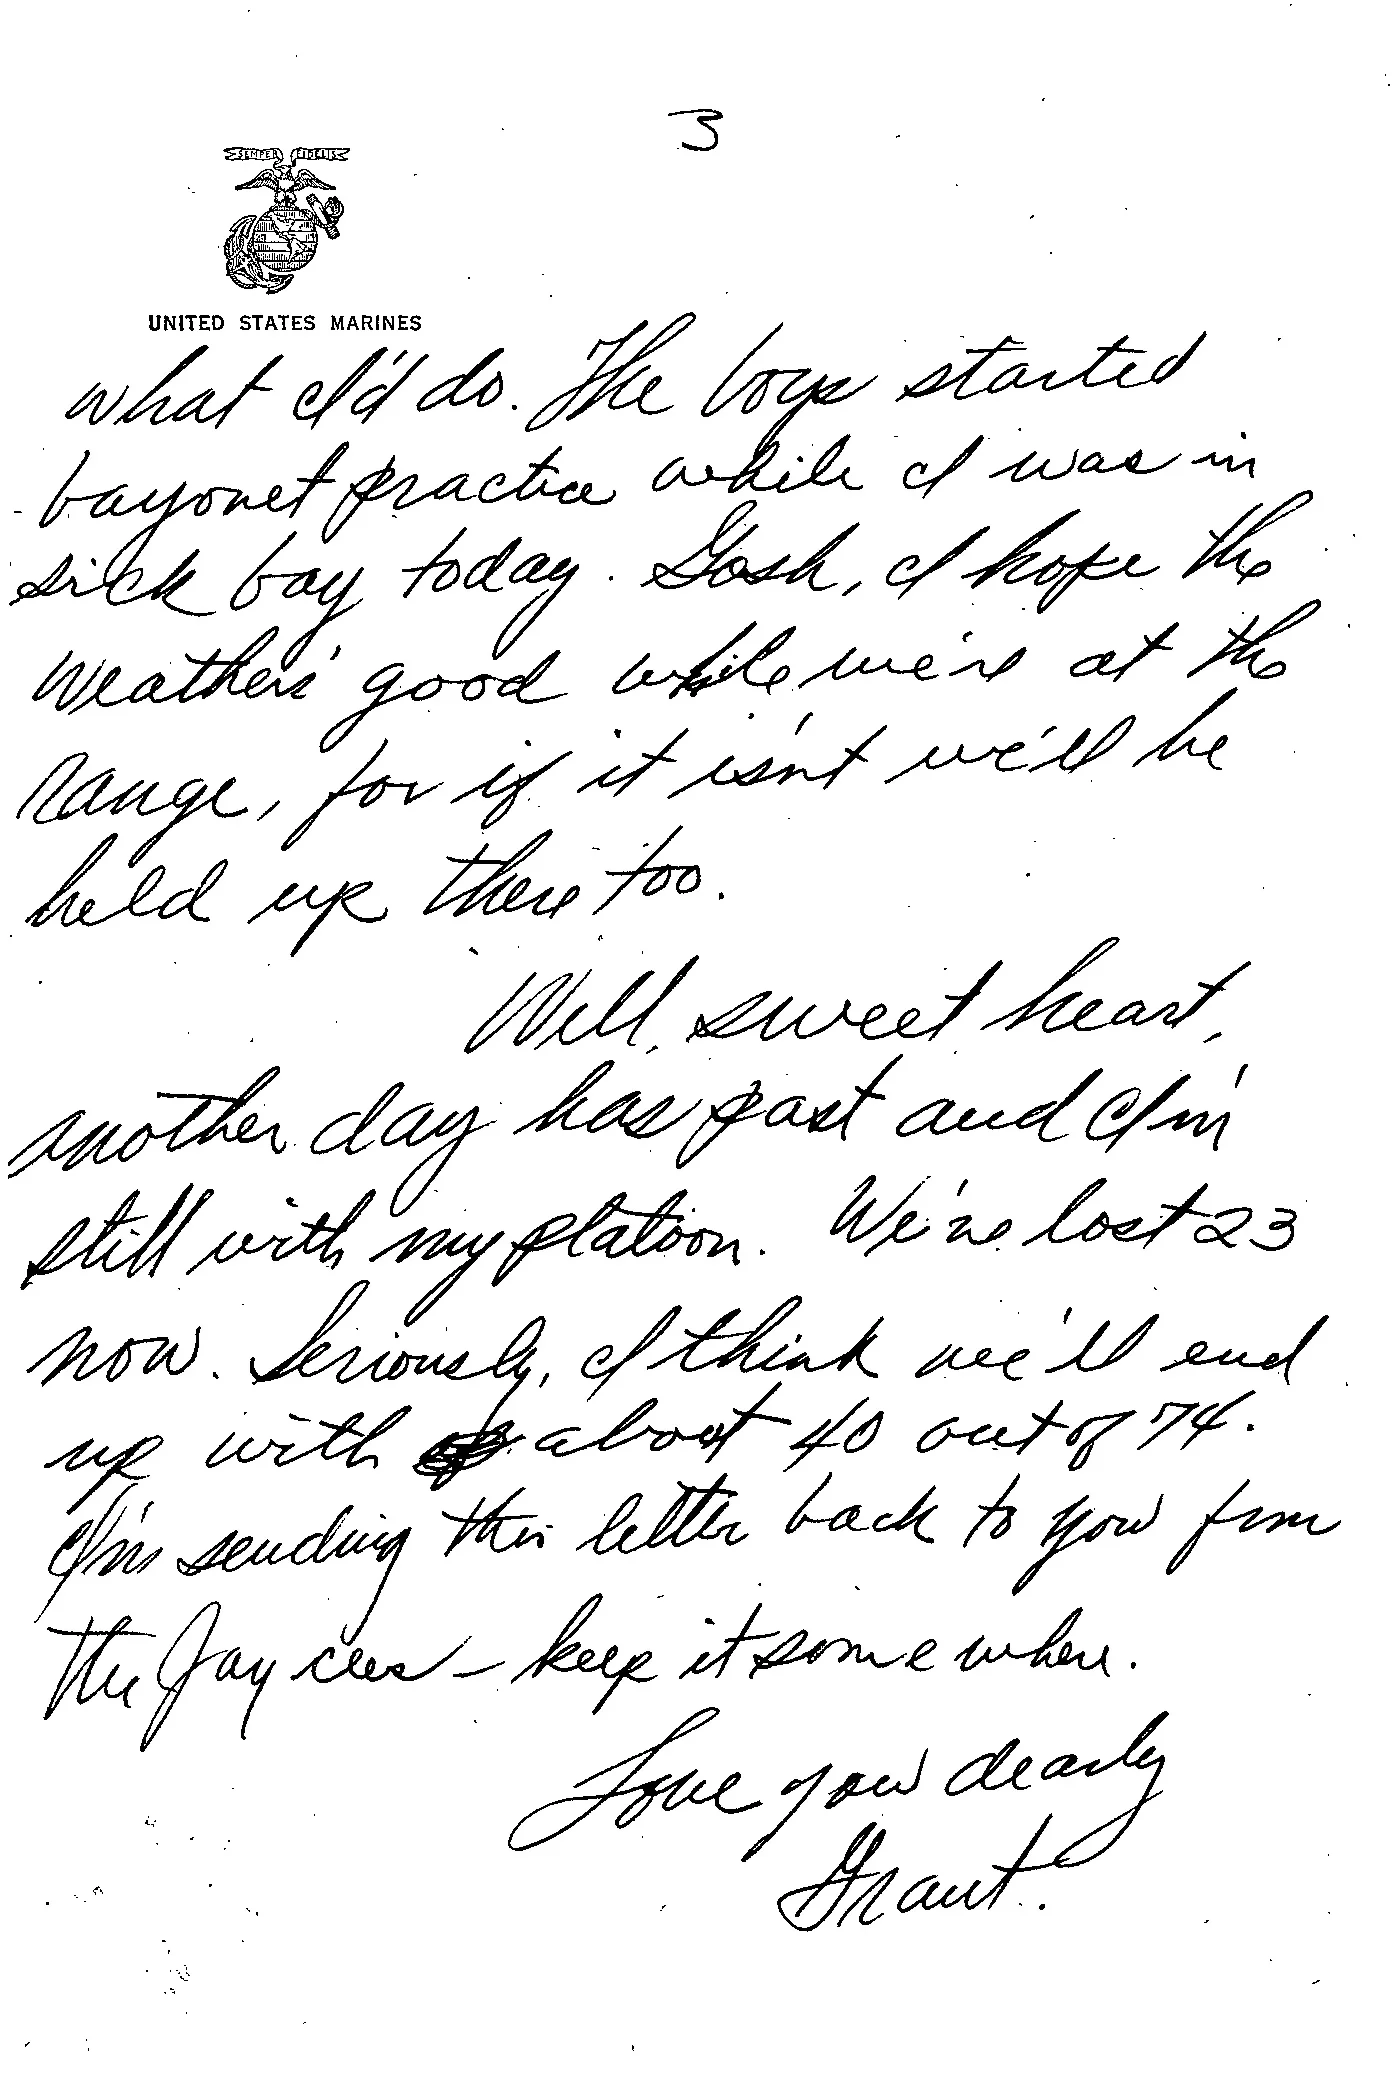 3
SEMPER FIDELIS
UNITED STATES MARINES
what I'd do. The boys started
bayonet practice while I was in
sick bay today. Gosh, I hope the
weather's good while we're at the
range, for if it isn't we'll be
held up there too.
Well, sweet heart,
another day has past and I'm
still with my platoon. We've lost 23
now. Seriously, I think we'll end
up with about 40 out of 74.
I'm sending this letter back to you from
the Jaycees – keep it somewhere.
Love you dearly
Grant.